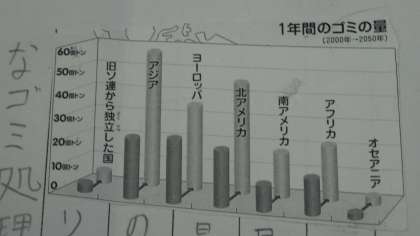 1年間のゴミの量
(2000年→2050年)
60億トン
50億トン
40億トン
30億トン
20億トン
10億トン
0億トン
旧ソ連から独立した国
アジア
ヨーロッパ
北アメリカ
南アメリカ
アフリカ
オセアニア
なゴミ処理